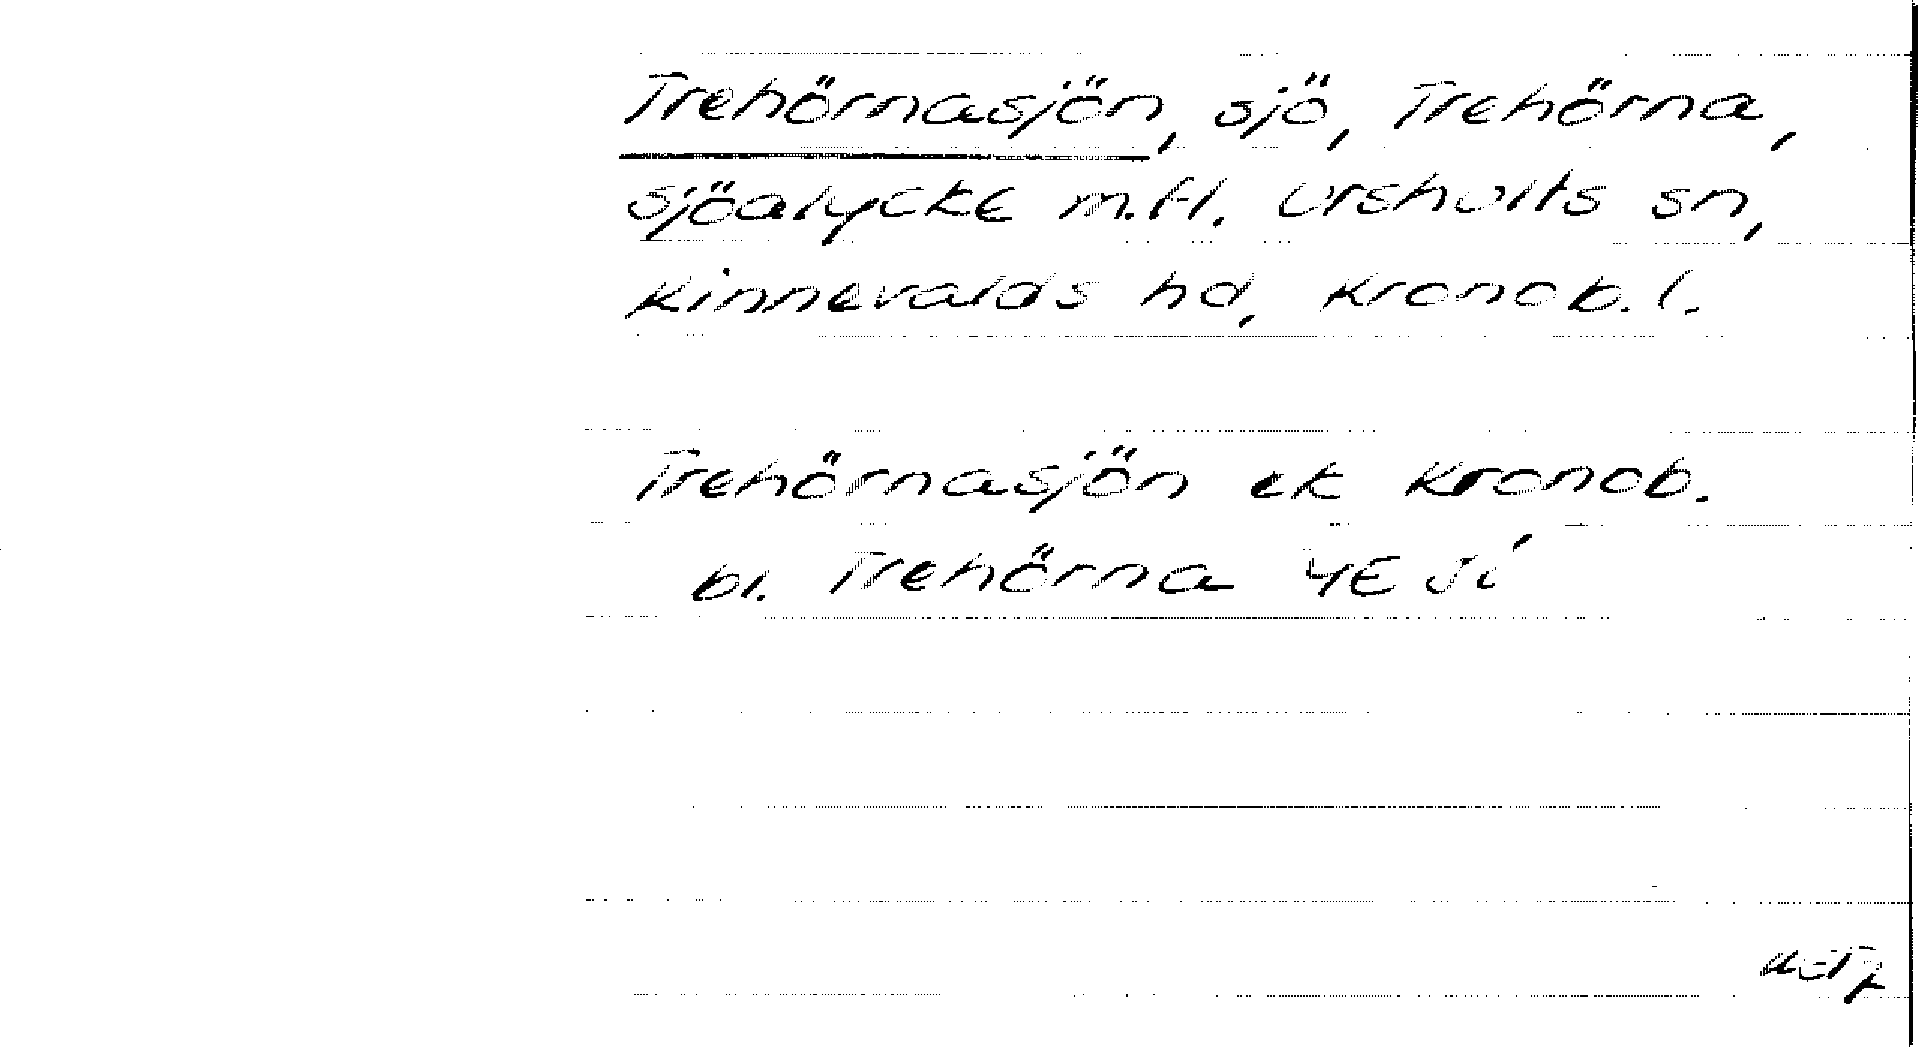 Trehörnasjön, sjö, Trehörna,
sjöalycke m.fl. Urshults sn,
Kinnevalds hd, Kronob. l.
Trehörnasjön ek Kronob.
bl. Trehörna 4E